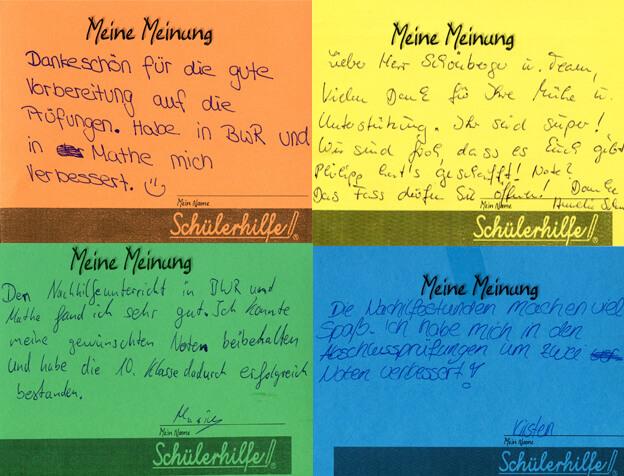 Meine Meinung
Dankeschön für die gute
Vorbereitung auf die
Prüfungen. Habe in BWR und
in Mathe mich
Verbessert.
Mein Name
Schülerhilfe!
Meine Meinung
Lieber Herr Schönberger u. Team,
Vielen Dank für Ihre Mühe u.
Unterstützung. Ihr seid super!
Wir sind froh, dass es Euch gibt
Philipp hat's geschafft! Note 2
Das Fass dürfen Sie öffnen! Danke
Mein Name
Schülerhilfe!
Meine Meinung
Den Nachhilfeunterricht in BWR und
Mathe fand ich sehr gut. Ich konnte
meine gewünschten Noten beibehalten
und habe die 10. Klasse dadurch erfolgreich
bestanden.
Mein Name
Schülerhilfe!
Meine Meinung
Die Nachilfestunden machen viel
Spaß. Ich habe mich in den
Abschlussprüfungen um zwei
Noten verbessert!
Kristen
Mein Name
Schülerhilfe!